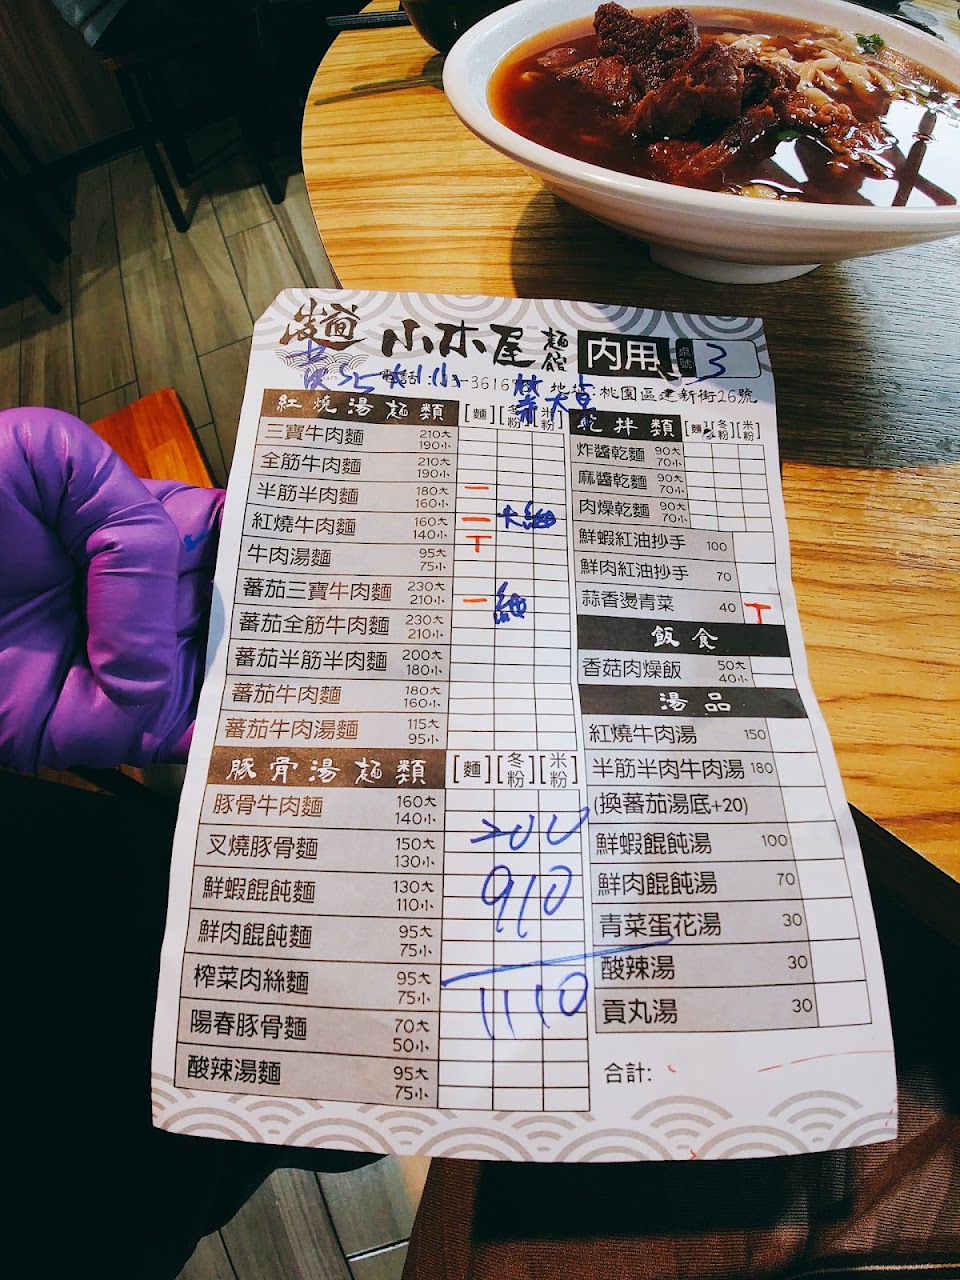 小木屋 麵館 內用 桌號 3
電話:03-3616 地址:桃園區建新街26號
大卓
紅燒湯麵類 [麵] [冬粉] [米粉]
三寶牛肉麵 210大 190小
全筋牛肉麵 210大 190小
半筋半肉麵 180大 160小 一
紅燒牛肉麵 160大 140小 一 大細
牛肉湯麵 95大 75小 T
蕃茄三寶牛肉麵 230大 210小 一 細
蕃茄全筋牛肉麵 230大 210小
蕃茄半筋半肉麵 200大 180小
蕃茄牛肉麵 180大 160小
蕃茄牛肉湯麵 115大 95小
豚骨湯麵類 [麵] [冬粉] [米粉]
豚骨牛肉麵 160大 140小
叉燒豚骨麵 150大 130小
鮮蝦餛飩麵 130大 110小
鮮肉餛飩麵 95大 75小
榨菜肉絲麵 95大 75小
陽春豚骨麵 70大 50小
酸辣湯麵 95大 75小
200
910
1110
乾拌類 [麵] [冬粉] [米粉]
炸醬乾麵 90大 70小
麻醬乾麵 90大 70小
肉燥乾麵 90大 70小
鮮蝦紅油抄手 100
鮮肉紅油抄手 70
蒜香燙青菜 40 T
飯食
香菇肉燥飯 50大 40小
湯品
紅燒牛肉湯 150
半筋半肉牛肉湯 180
(換蕃茄湯底+20)
鮮蝦餛飩湯 100
鮮肉餛飩湯 70
青菜蛋花湯 30
酸辣湯 30
貢丸湯 30
合計: